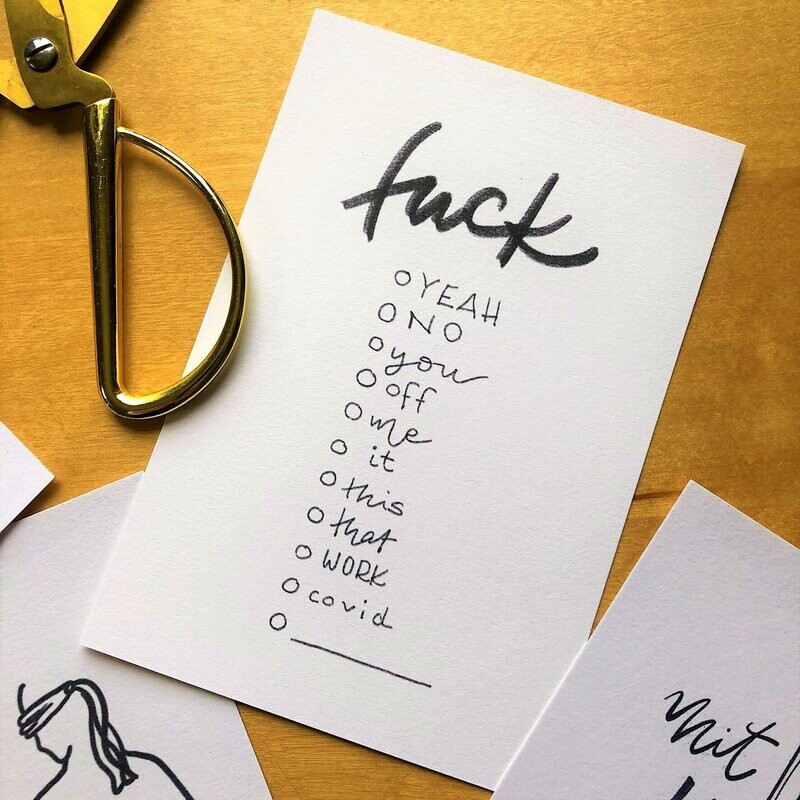 fuck
O YEAH
O NO
O you
O off
O me
O it
O this
O that
O WORK
O covid
O ________
mit